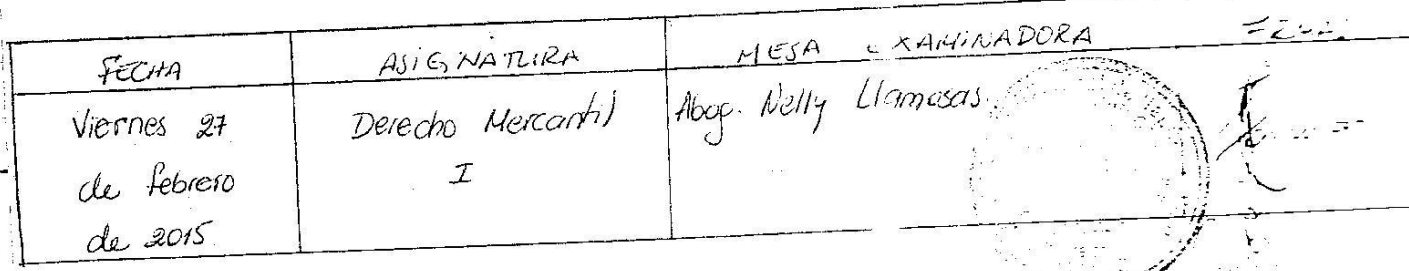 FECHA
ASIGNATURA
MESA EXAMINADORA
Viernes 27
de febrero
de 2015
Derecho Mercantil
I
Abog. Nelly Llamosas